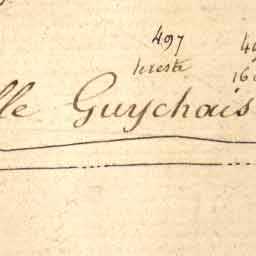 497
le reste
lle Guychais